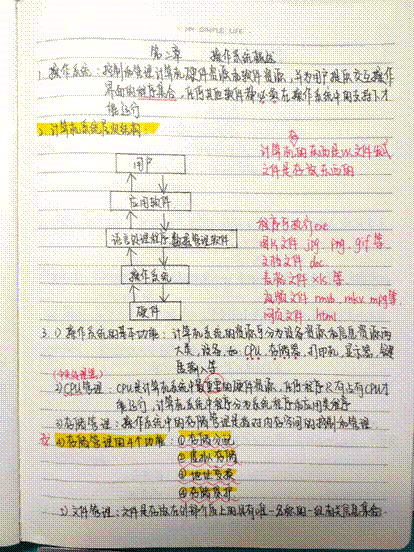 MY SIMPLE LIFE
第二章 操作系统概述
1. 操作系统：控制和管理计算机硬件资源和软件资源，并为用户提供交互操作
界面的程序集合，任何其他软件都必须在操作系统中的支持下才
能运行
2. 计算机系统层次结构：
用户
应用软件
语言处理程序 数据管理软件
操作系统
硬件
存
计算机的东西是以文件形式
文件是存放东西的
程序可执行 exe
图片文件 .jpg .png .gif 等
文档文件 doc
表格文件 xls 等
视频文件 rmvb .mkv .mpg等
网页文件 .html
3. 1) 操作系统的基本功能：计算机系统的资源可分为设备资源和信息资源两
大类，设备，如：CPU、存储器、打印机、显示器、键
盘输入等
2) CPU管理：CPU是计算机系统中最重要的硬件资源，任何程序只有占有CPU才
能运行，计算机系统中程序分为系统程序和应用类程序
3) 存储管理：操作系统中的存储管理是指对内存空间的控制和管理
4) 存储管理的4个功能：① 存储分配
② 虚拟存储
③ 地址变换
④ 存储保护
5) 文件管理：文件是存放在外部介质上的具有唯一名称的一组相关信息集合